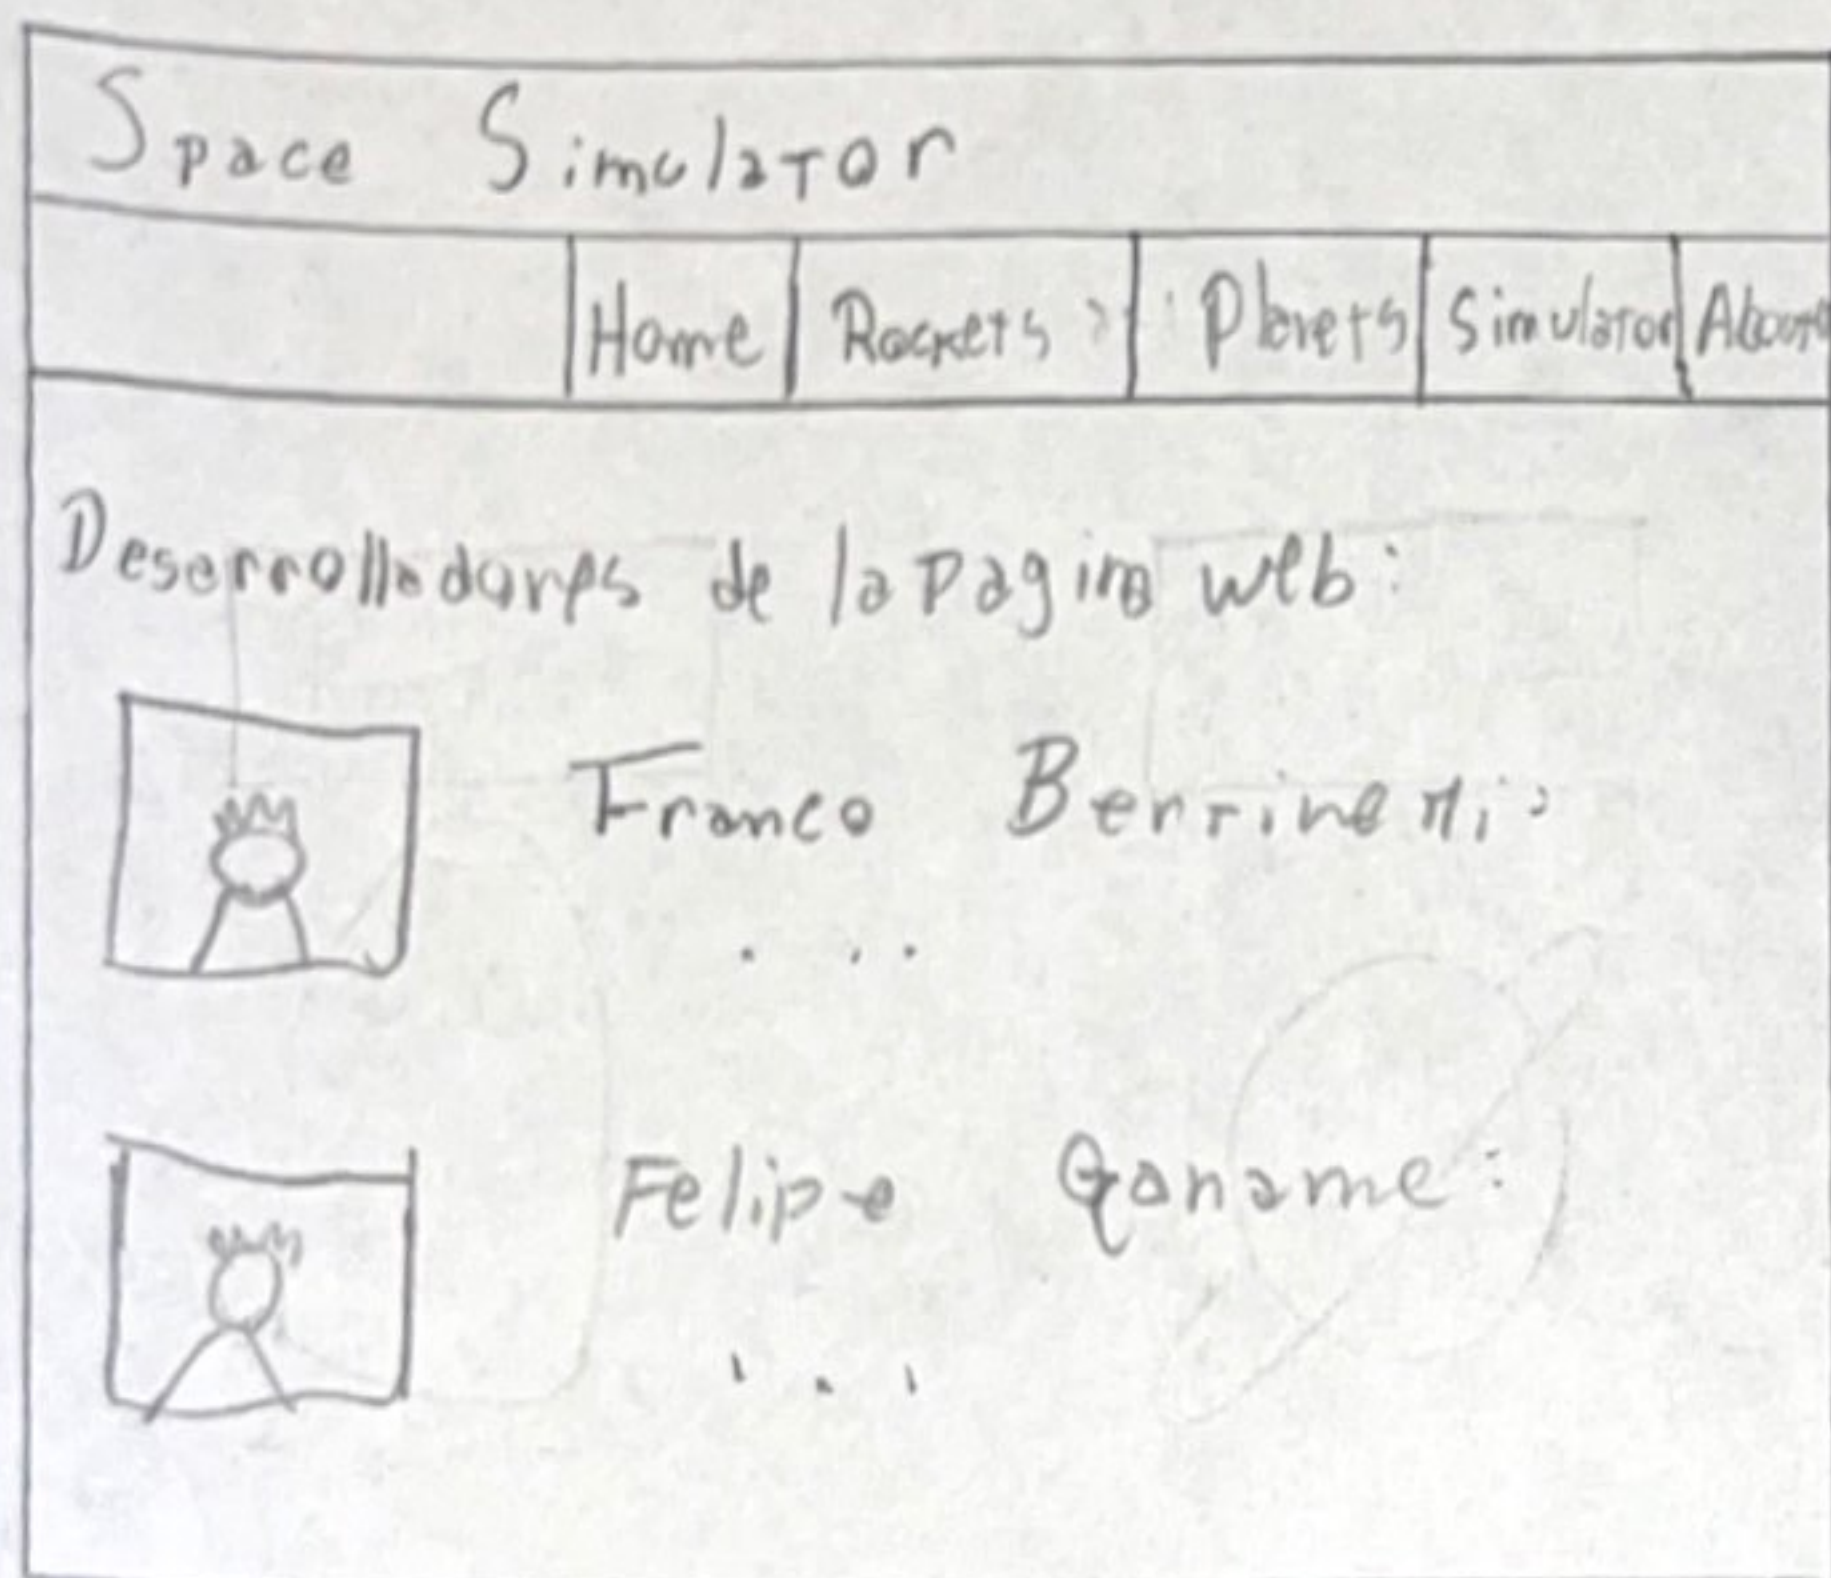 Space Simulator
Home Rockets Planets Simulator About
Desarrolladores de la pagina web:
Franco
...
Felipe Ganame:
...